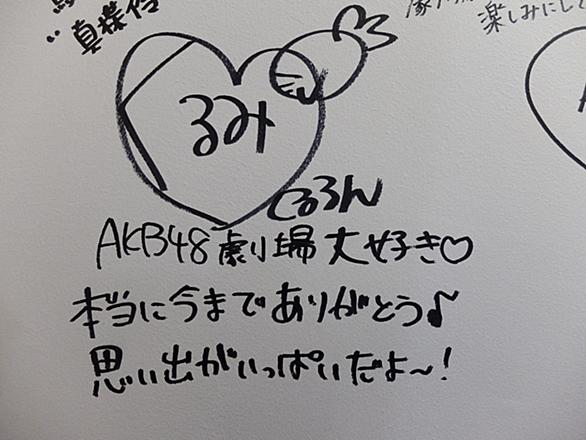 るみ
くるるん
AKB48劇場大好き♡
本当に今までありがとう♪
思い出がいっぱいだよ〜!
楽しみにして